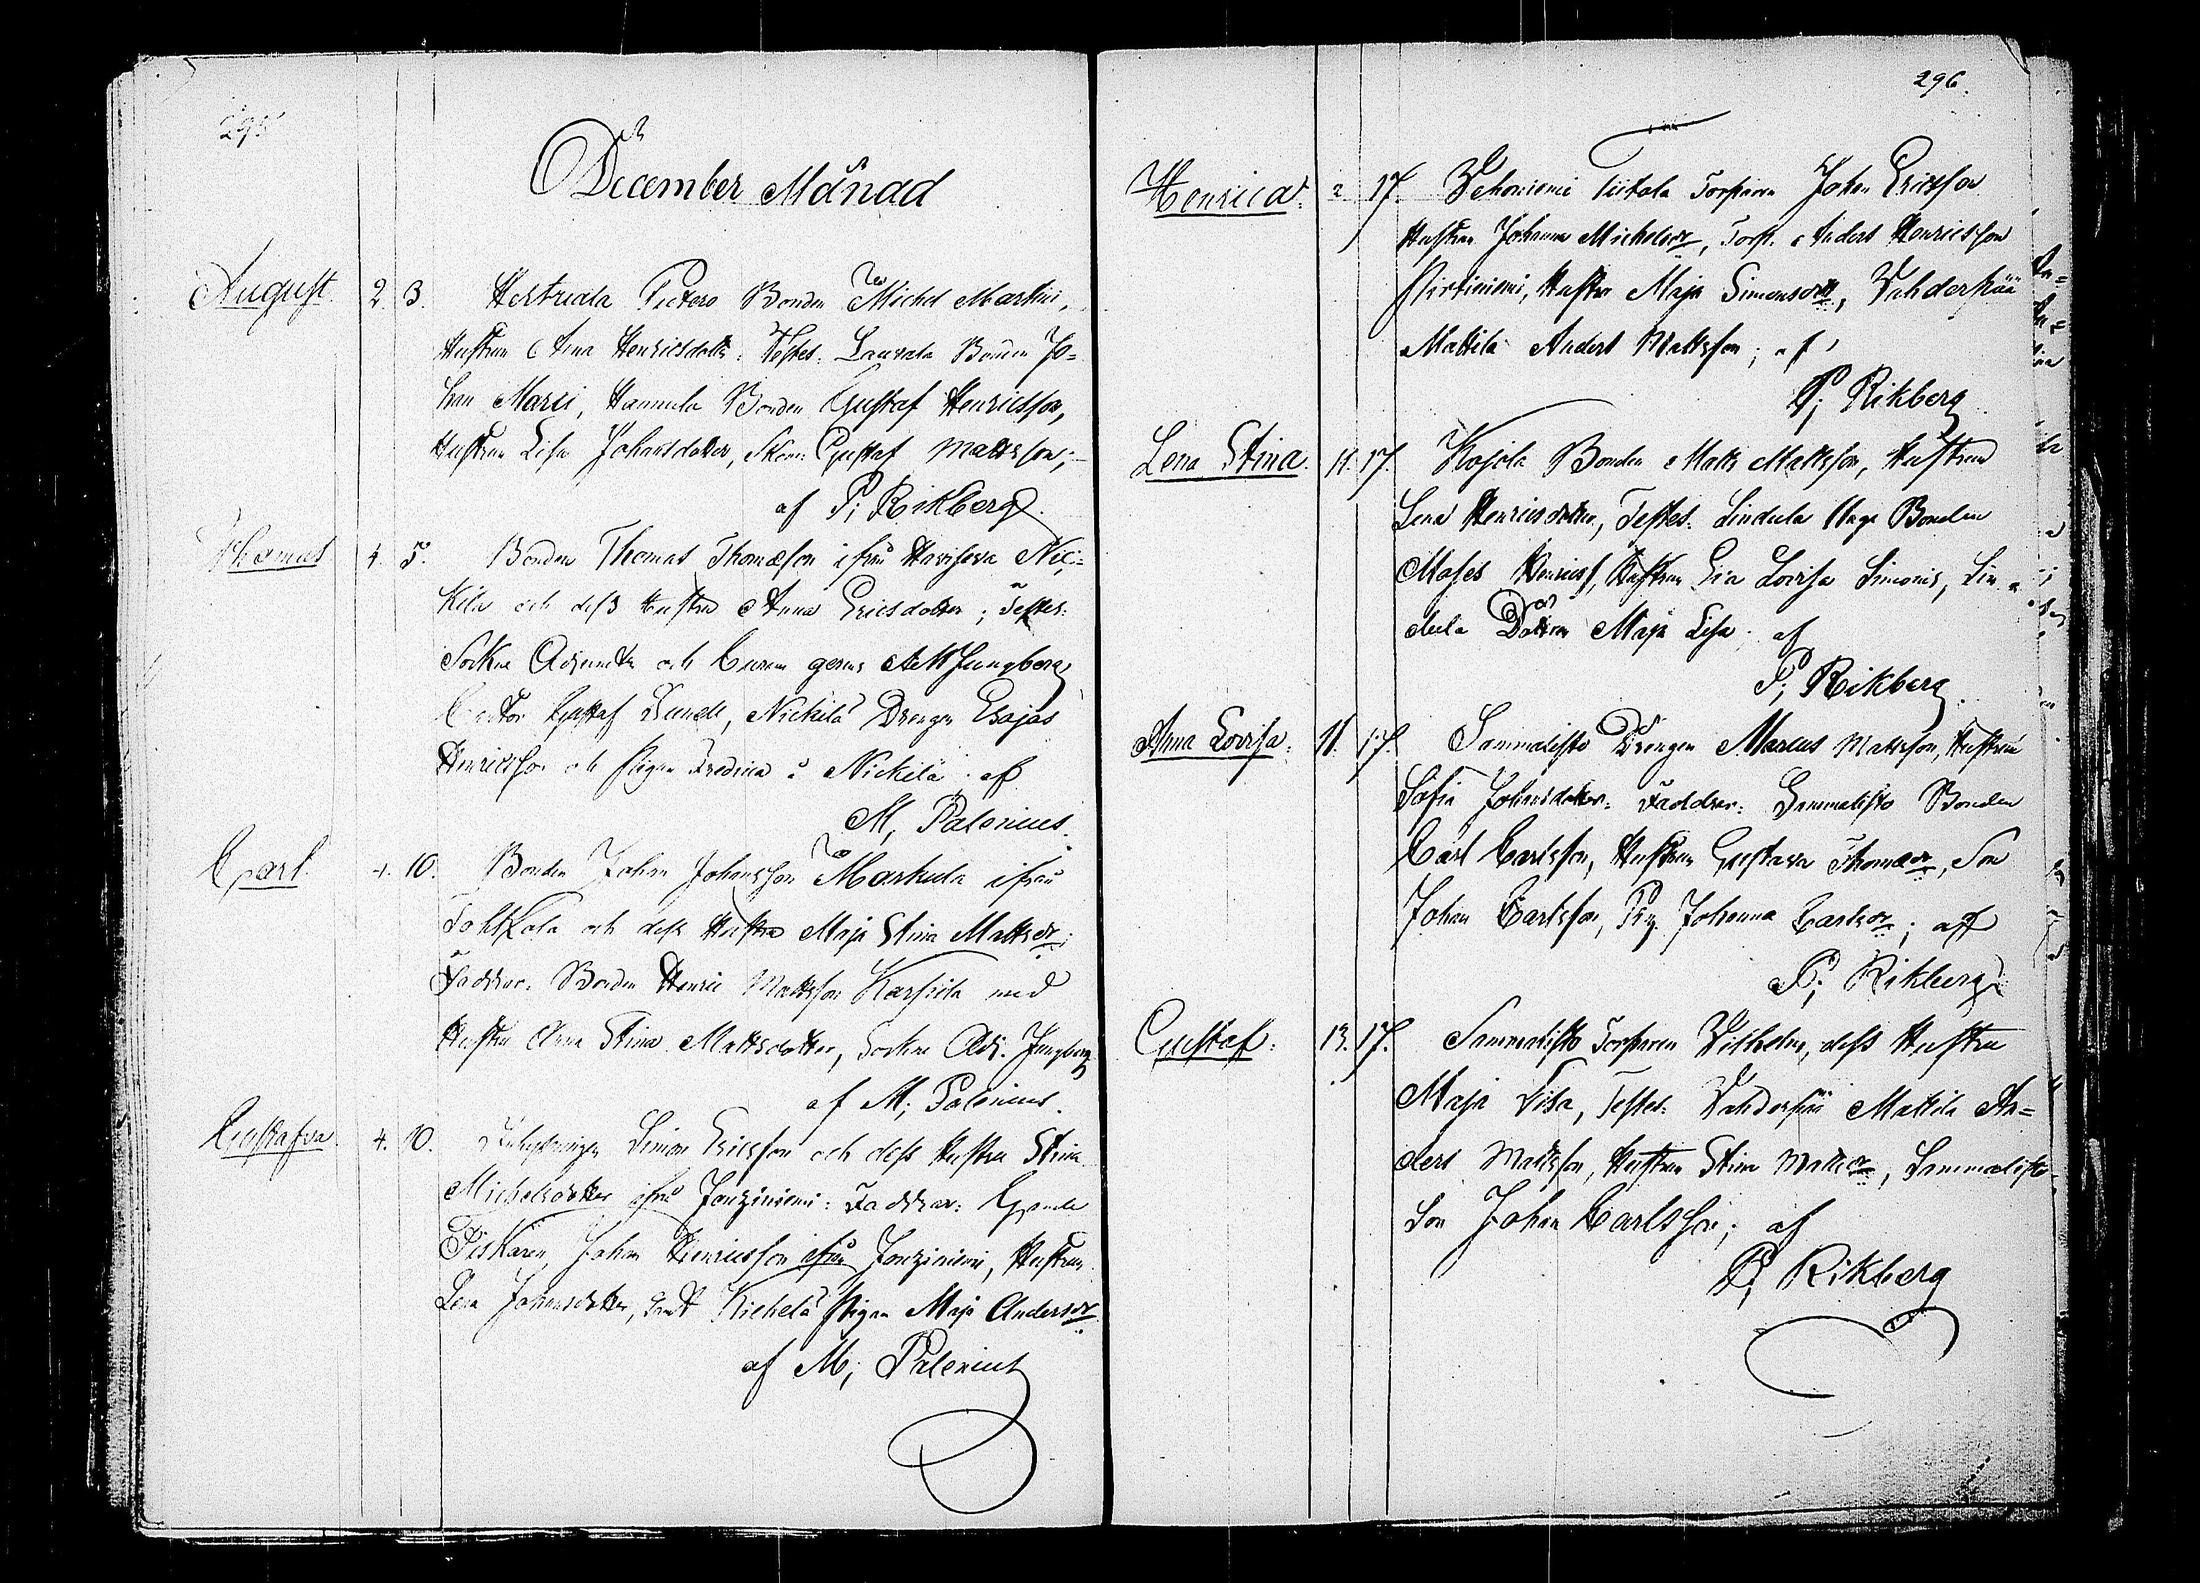 295
December Månad
August. 2. 3. Hertuala Pietero Bonden Michel Markui,
Hustrun Anna Henricsdotter. Testes. Laurala Bonden Jo=
han Marci, Hannula Bonden Gustaf Henricsson,
Hustrun Lisa Johansdotter, Gustaf Mattsson;
af P; Rikberg.
Thomas 4. 5. Bonden Thomas Thomæson ifrån Nic=
kilä och dess Hustru Anna Ericsdotter; Testes:
Sockne Adjuncten och Ljungberg
Cantor Gustaf Nickilä Drengen Esajas
Henricsson och Pigan Fredrica i Nickilä. af
M, Palenius.
Carl. 4. 10. Bonden Johan Johansson Markula ifrån
och dess Hustru Maja Stina Mattsdr;
Faddrar. Bonden Henric Mattsson Karsila med
Hustru Anna Stina Mattsdotter, Sockne Adj. Jungberg
af M; Palenius.
Gustafva. 4. 10. Inhysningen Simon Ericsson och dess Hustru Stina
Michelsdotter ifrån Jonziniemi: Faddrar:
Fiskaren Johan Henricsson ifrån Jonziniemi, Hustrun
Lena Johansdotter, samt Kichelä Pigan Maja Andersdr
af M; Palenius
296.
Henrica. 2. 17. Vehoniemi Tiitola Torparen Johan Ericsson
Hustrun Johanna Michelsdr, Torp. Anders Henricsson
Hustru Maja Simonsdr, Vahderpää
Mattila Anders Mattsson; af
P; Rikberg
Lena Stina. 11. 17. Kojola Bonden Matts Mattsson, Hustrun
Lena Henricsdotter, Testes. Lindula Unga Bonden
Moses Henricss, Hustrun Eva Lovisa Simonis, Lin=
dula Dottren Maja Lisa. af
P; Rikberg.
Anna Lovisa. 11. 17. Sammalisto Drengen Marcus Mattsson, Hustrun
Sofia Johansdotter. Faddrar: Sammalisto Bonden
Carl Carlsson, Hustrun Gustava Thomædr, Son
Johan Carlsson, Pig. Johanna Carlsdr; af
P; Rikberg.
Gustaf. 13. 17. Sammalisto Torparen Wilhelm, dess Hustru
Maja Lisa, Testes: Vahderpää Mattila An=
ders Mattsson, Hustrun Stina Mattsdr, Sammalisto
Son Johan Carlsson; af
P; Rikberg